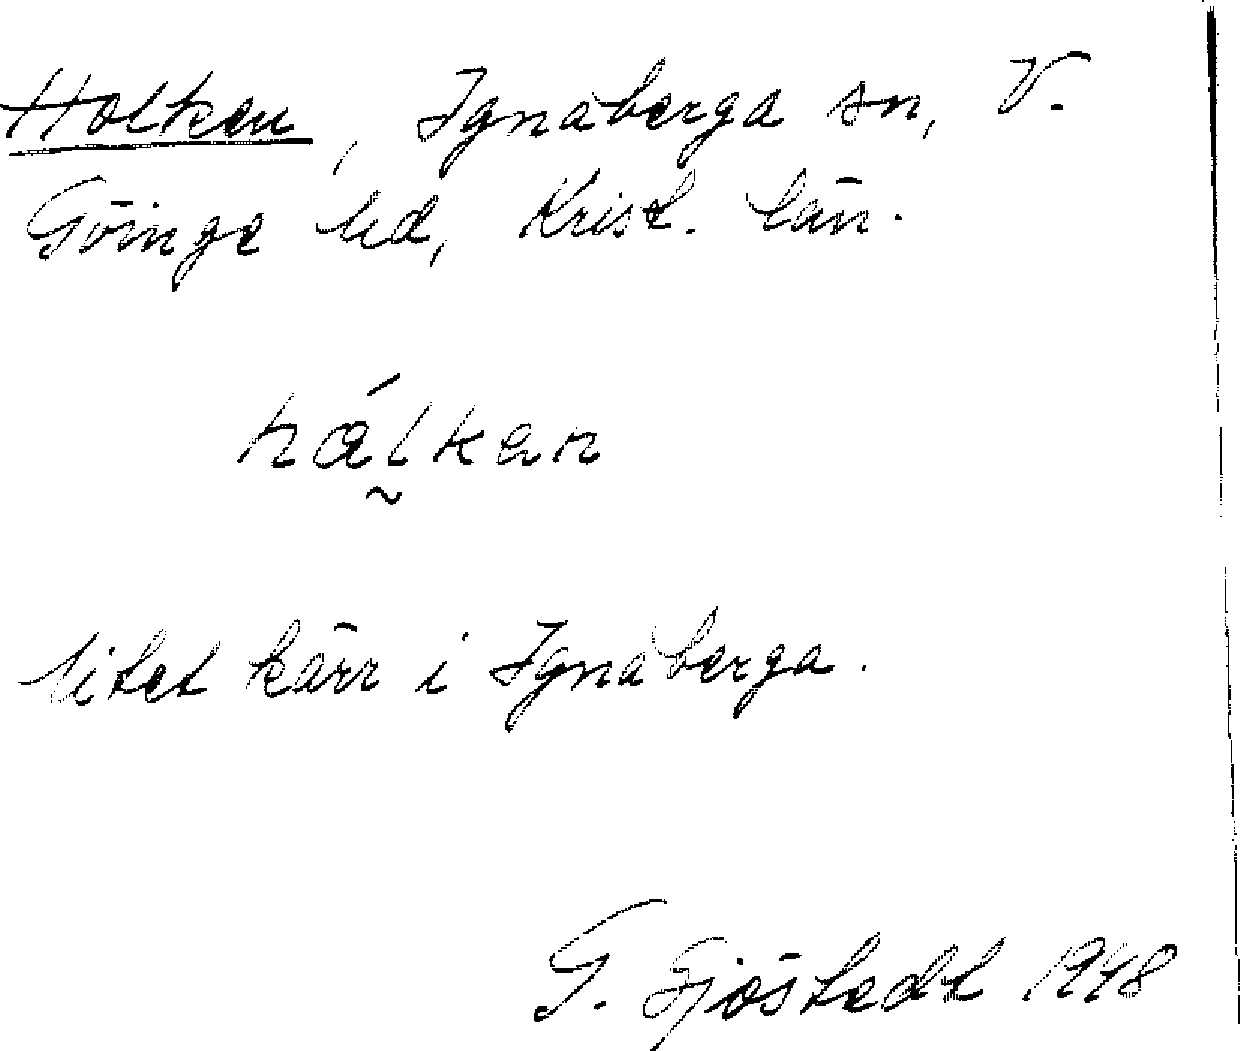 Holken, Ignaberga sn, V.
Göinge hd, Krist. län.
hålken
litet kärr i Ignaberga.
G. Sjöstedt 1948